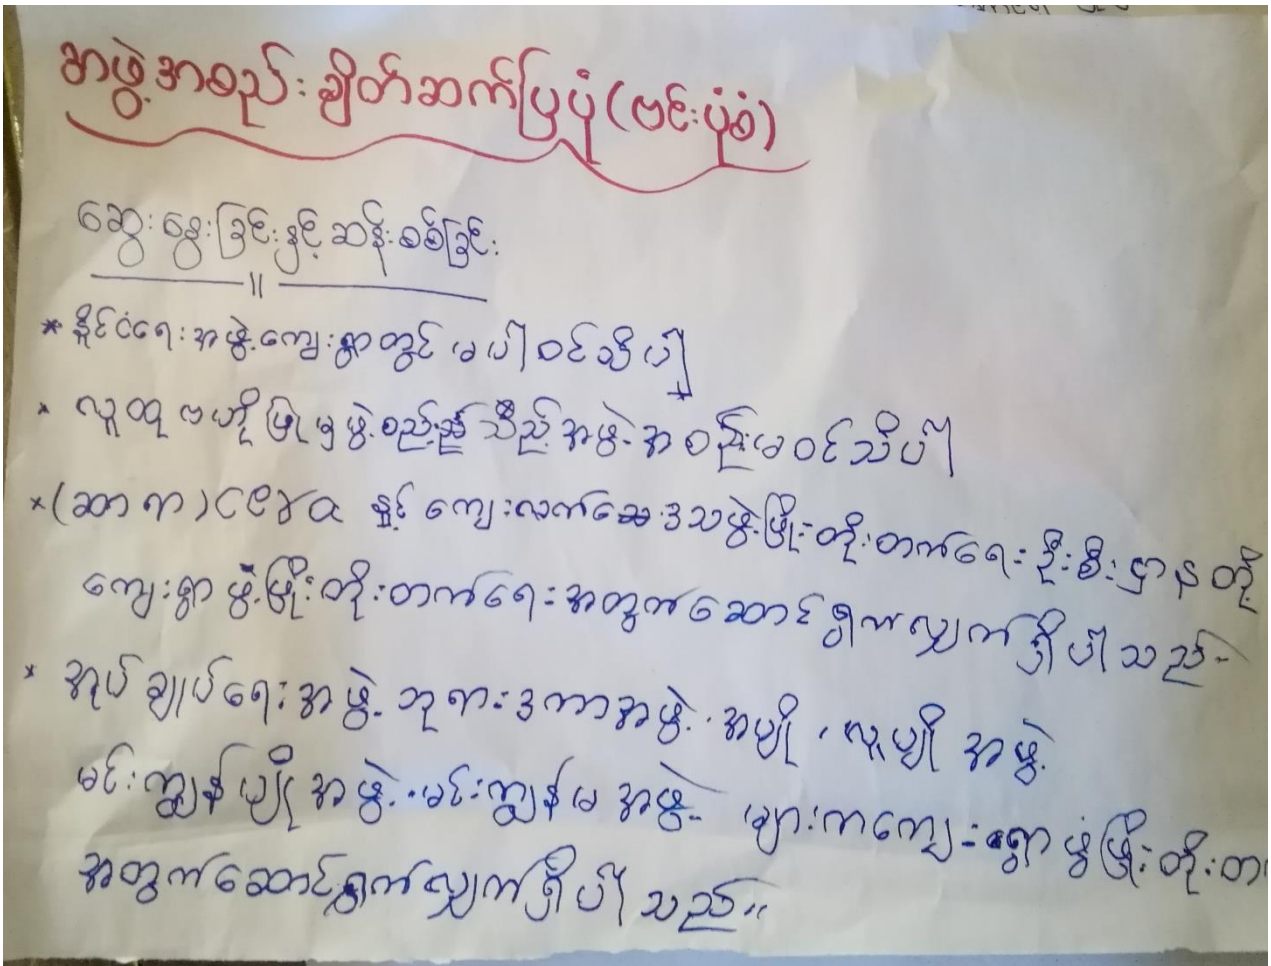 အဖွဲ့အစည်းချိတ်ဆက်ပြပုံ(ဗင်းပုံစံ)
ဆွေးနွေးခြင်းနှင့်ဆန်းစစ်ခြင်း
* နိုင်ငံရေးအဖွဲ့ကျေးရွာတွင် မပါဝင်သိပါ
* လူထုဗဟိုပြုမှုဖွဲ့စည်း သည့်အဖွဲ့အစည်းမဝင်သိပါ
* (ဆာရာ) နှင့် ကျေးလက်ဒေသဖွံ့ဖြိုးတိုးတက်ရေးဦးစီးဌာနတို့
ကျေးရွာဖွံ့ဖြိုးတိုးတက်ရေးအတွက်ဆောင်ရွက်လျှက်ရှိပါသည်-
* အုပ်ချုပ်ရေးအဖွဲ့ ဘုရားဒကာအဖွဲ့၊ အပျို၊ လူပျို အဖွဲ့
မင်းကျွန်ပျိုအဖွဲ့၊ မင်းကျွန်မအဖွဲ့ များကကျေးရွာဖွံ့ဖြိုးတိုးတ
အတွက်ဆောင်ရွက်လျှက်ရှိပါသည်။